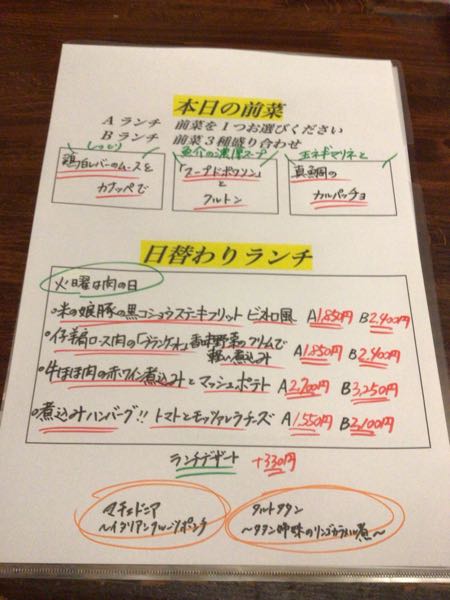 本日の前菜
Aランチ 前菜を1つお選びください
Bランチ 前菜3種盛り合わせ
しっとり
鶏白レバーのムースを
カナッペで
魚介の濃厚スープ
「スープドポワソン」
と
クルトン
玉ネギマリネと
真鯛の
カルパッチョ
日替わりランチ
火曜は肉の日
・米の娘豚の黒コショウステーキフリット ビストロ風 A1,850円 B2,400円
・仔羊ロース肉の「ブランケット」香味野菜のクリームで
軽い煮込み A1,850円 B2,400円
・牛ほほ肉の赤ワイン煮込みとマッシュポテト A2,700円 B3,250円
・煮込みハンバーグ!! トマトとモッツァレラチーズ A1,550円 B2,100円
ランチデザート +330円
マチェドニア
〜イタリアンフルーツポンチ
タルトタタン
〜タタン姉妹のリンゴカラメル煮〜